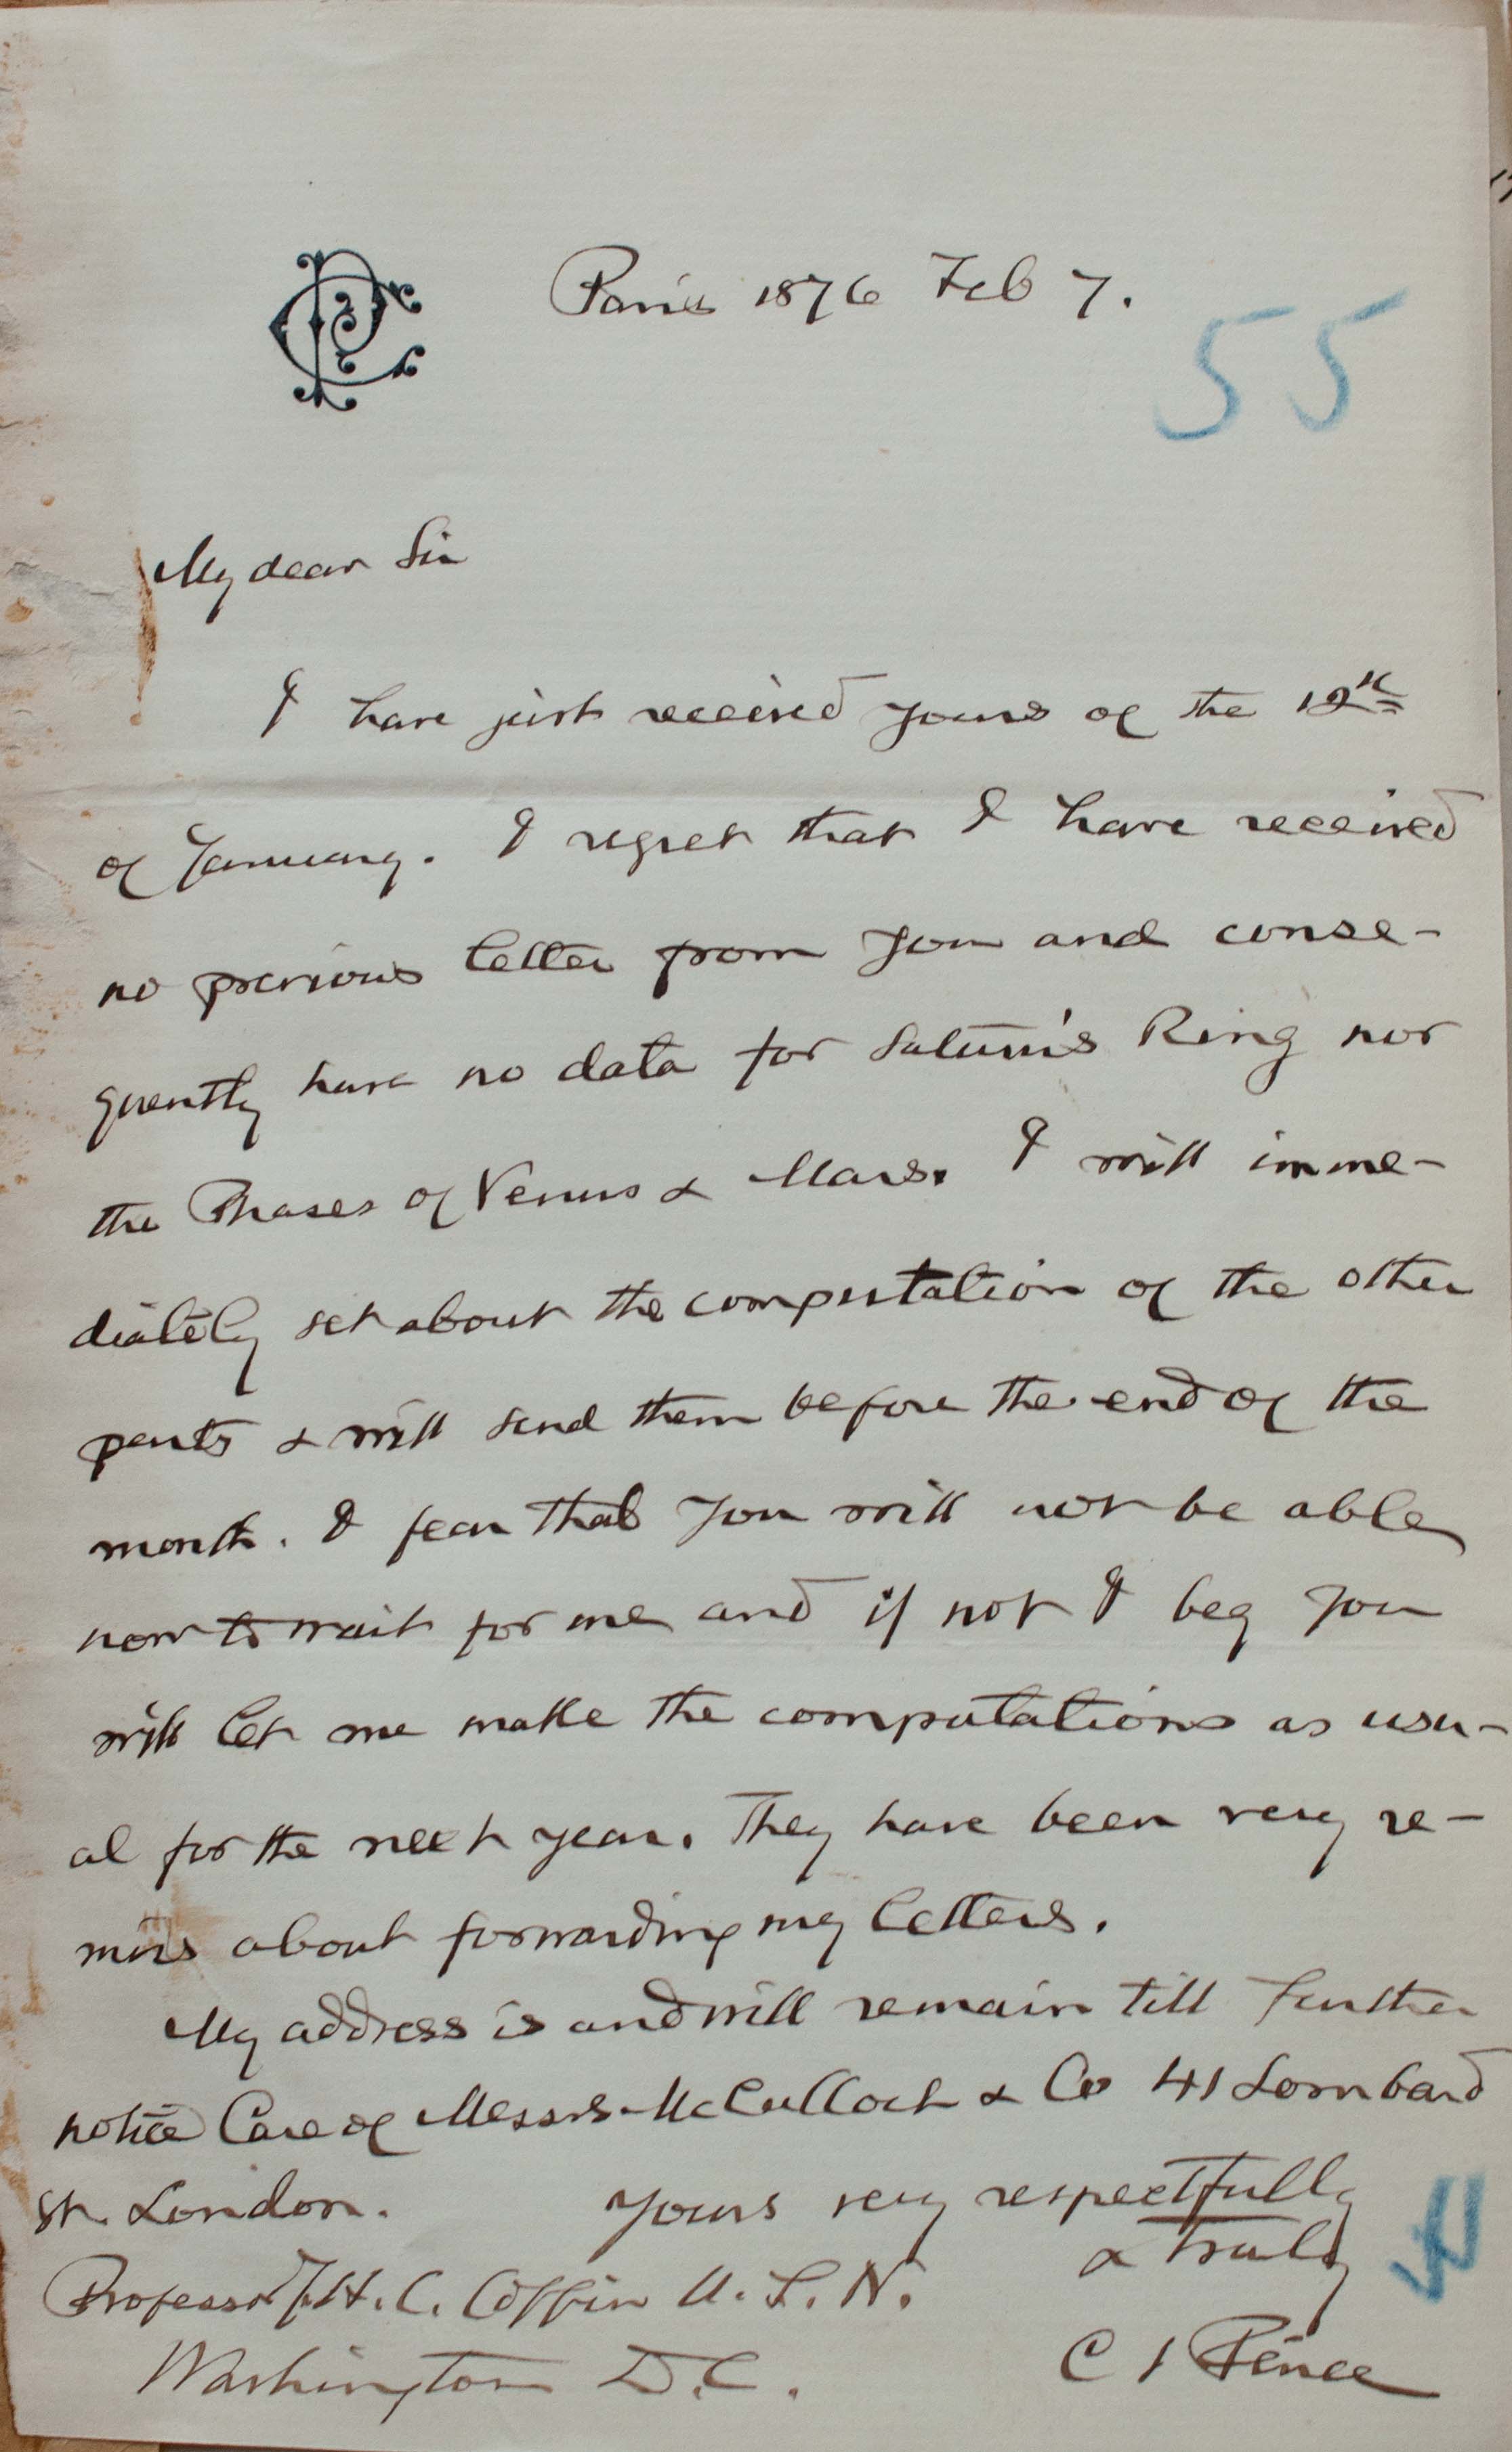 Paris 1876 Feb 7.
55
My dear Sir
I have just received yours of the 12th
of January. I regret that I have received
no previous letter from you and conse-
quently have no data for Saturn's Ring nor
the Phases of Venus & Mars. I will imme-
diately set about the computation of the other
parts & will send them before the end of the
month. I fear that you will not be able
now to wait for me and if not I beg you
will let me make the computations as usu-
al for the next year. They have been very re-
miss about forwarding my letters.
My address is and will remain till further
notice Care of Messrs McCulloch & Co 41 Lombard
St. London.
Yours very respectfully
& truly
Professor J.H.C. Coffin U.S.N.
Washington D.C.
C S Peirce